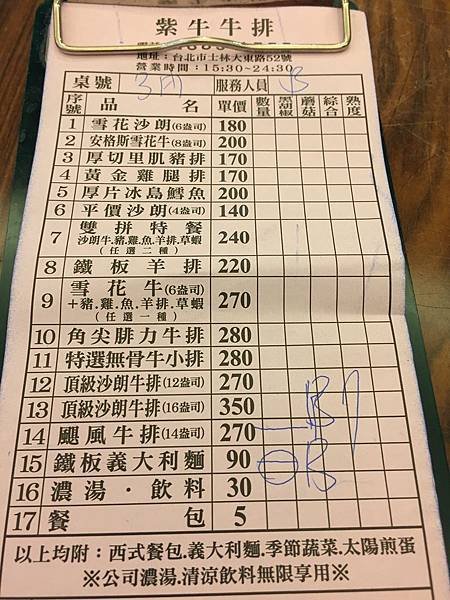 紫牛牛排
地址：台北市士林大東路52號
營業時間：15:30~24:30
桌號 服務人員 B
序號 品名 單價 數量 黑胡椒 蘑菇 綜合 熟度
1 雪花沙朗(6盎司) 180
2 安格斯雪花牛(8盎司) 200
3 厚切里肌豬排 170
4 黃金雞腿排 170
5 厚片冰島鱈魚 200
6 平價沙朗(4盎司) 140
7 雙拼特餐 沙朗牛.豬.雞.魚.羊排.草蝦 (任選二種) 240
8 鐵板羊排 220
9 雪花牛(6盎司) +豬.雞.魚.羊排.草蝦 (任選一種) 270
10 角尖腓力牛排 280
11 特選無骨牛小排 280
12 頂級沙朗牛排(12盎司) 270
13 頂級沙朗牛排(16盎司) 350
14 颶風牛排(14盎司) 270 一 B 7
15 鐵板義大利麵 90 一 B
16 濃湯．飲料 30
17 餐包 5
以上均附：西式餐包.義大利麵.季節蔬菜.太陽煎蛋
※公司濃湯.清涼飲料無限享用※